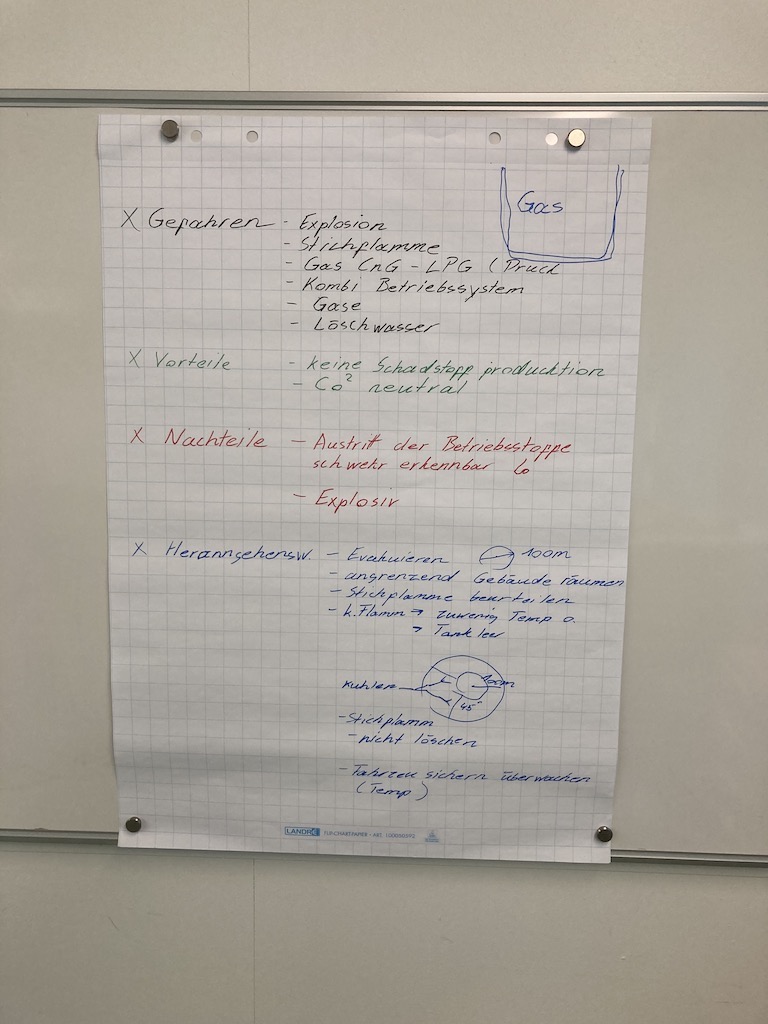 Gas
X Gefahren - Explosion
- Stichflamme
- Gas CnG - LPG (Druck
- Kombi Betriebssystem
- Gase
- Löschwasser
X Vorteile - keine Schadstoff producktion
- Co² neutral
X Nachteile - Austritt der Betriebsstoffe
schwehr erkennbar
- Explosiv
X Heranngehensw. - Evakuieren 100m
- angrenzend Gebäude räumen
- Stichflamme beurteilen
- k.Flamm → zuwenig Temp o.
→ Tank leer
100m
Kühlen
45°
- Stichflamm
- nicht löschen
- Fahrzeu sichern überwachen
(Temp)
LANDRÉ FLIP-CHART-PAPIER - ART. 100050592